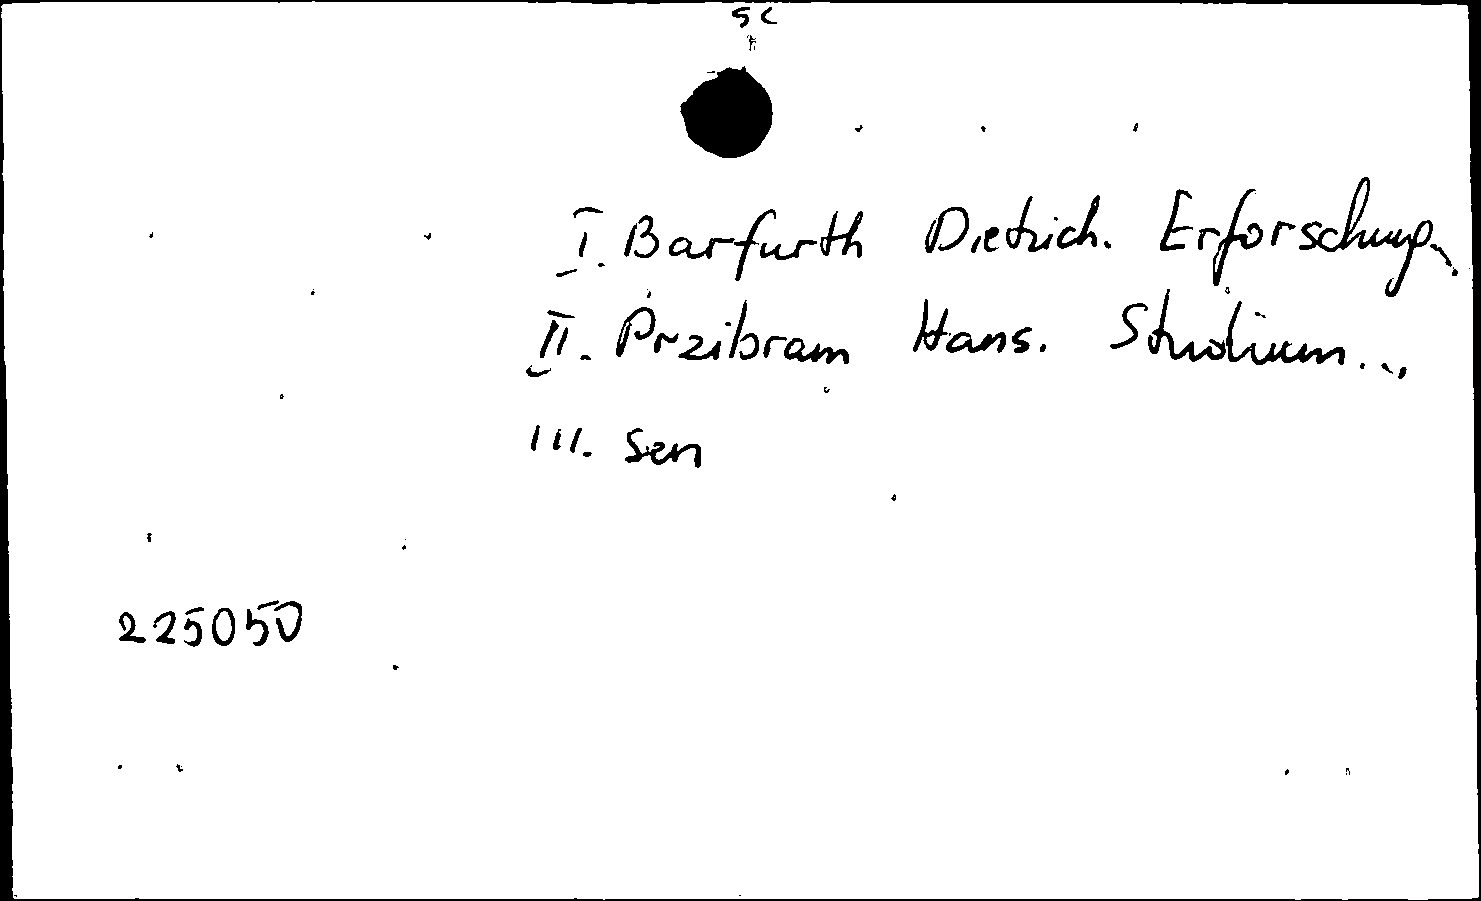 I. Barfurth Dietrich. Erforschung..
II. Przibram Hans. Studium...
III. sen
225050